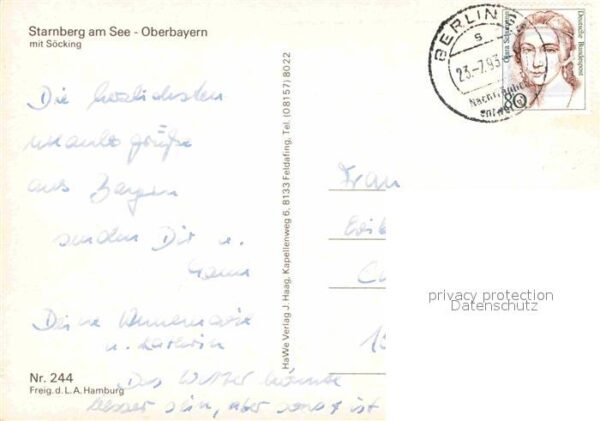 Starnberg am See - Oberbayern
mit Söcking
Die herzlichsten
Urlaubsgrüße
aus Bayern
senden Dir u.
Deine Annemarie
u.
Das Wetter könnte
besser sein, aber sonst ist
Nr. 244
Freig. d. L. A. Hamburg
HaWe Verlag J. Haag, Kapellenweg 6, 8133 Feldafing, Tel. (08157) 8022
BERLIN
s
23.-7.93
Nachträglich
entwertet
Clara Schumann
Deutsche Bundespost
80
Frau
privacy protection
Datenschutz